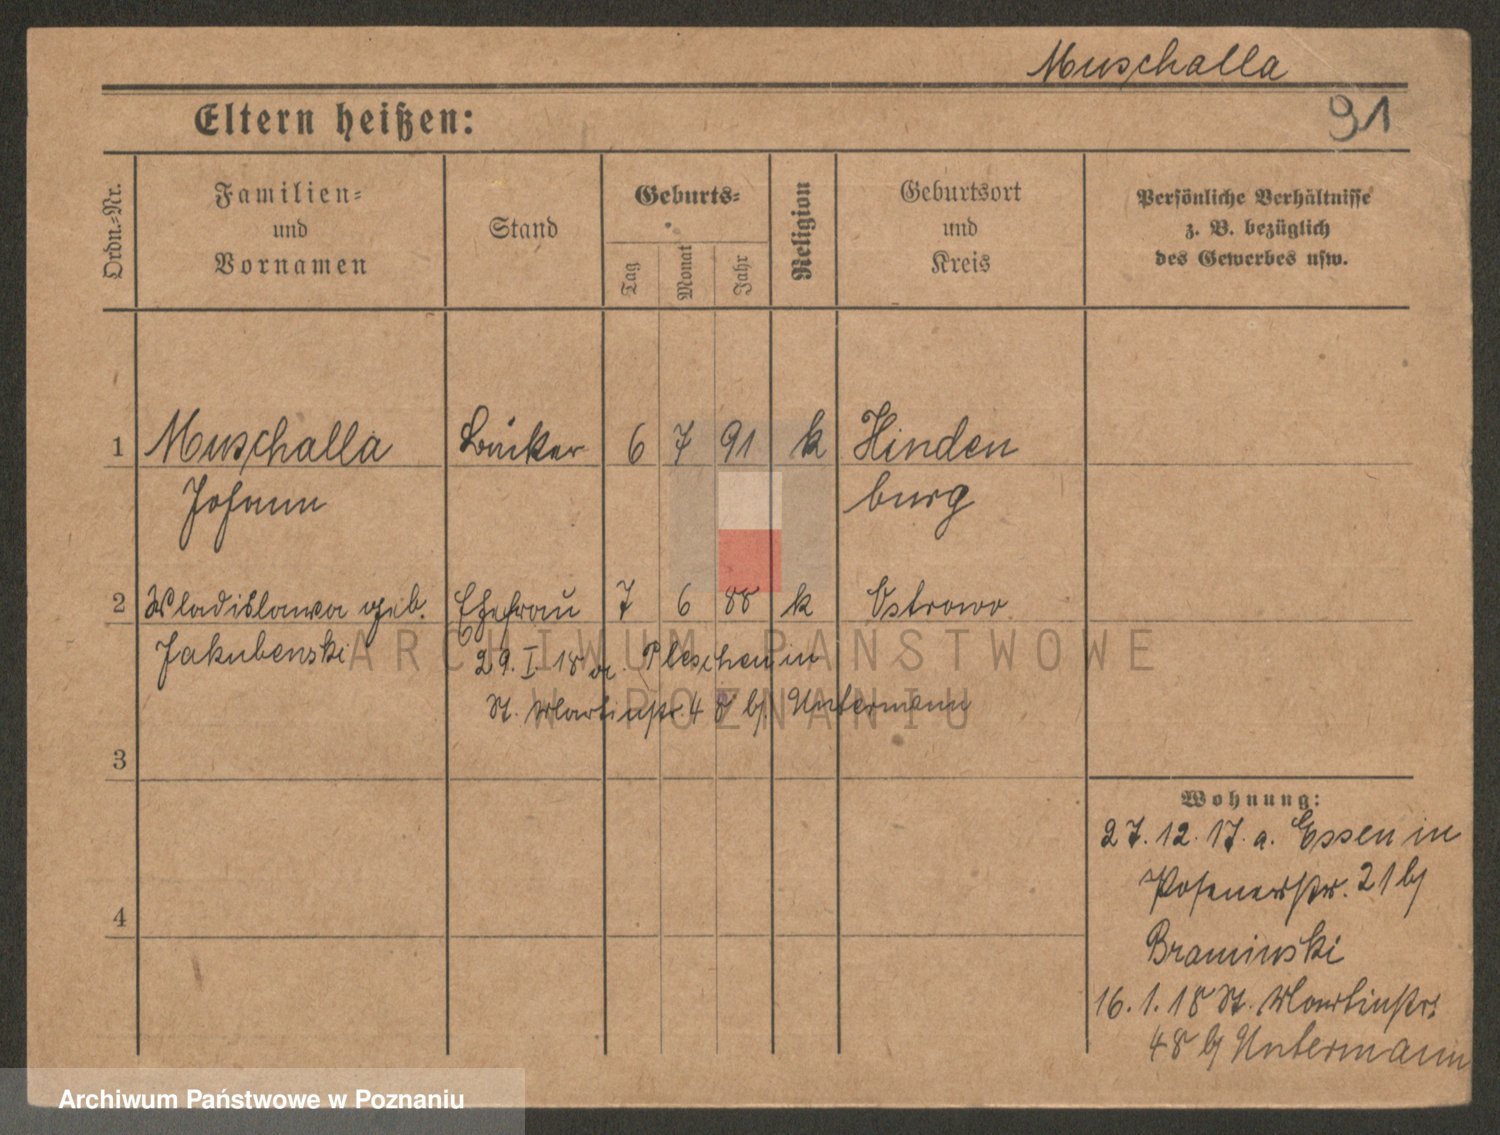 Muschalla
91
Eltern heißen:
Ordn.-Nr.
Familien-
und
Vornamen
Stand
Geburts-
Tag
Monat
Jahr
Religion
Geburtsort
und
Kreis
Persönliche Verhältnisse
z. B. bezüglich
des Gewerbes usw.
1 Muschalla Bäcker 6 7 91 k Hinden
Johann burg
2 Wladislawa geb. Ehefrau 7 6 88 k Ostrowo
Jakubenski 29. I. 18 a. Pleschen in
St. Martinstr. 48 bj Untermann
3
4
Wohnung:
27. 12. 17. a. Essen in
Posenerstr. 21 bj
Braminski
16. 1. 18 St. Martinstr.
48 bj Untermann
ARCHIWUM PAŃSTWOWE
W POZNANIU
Archiwum Państwowe w Poznaniu